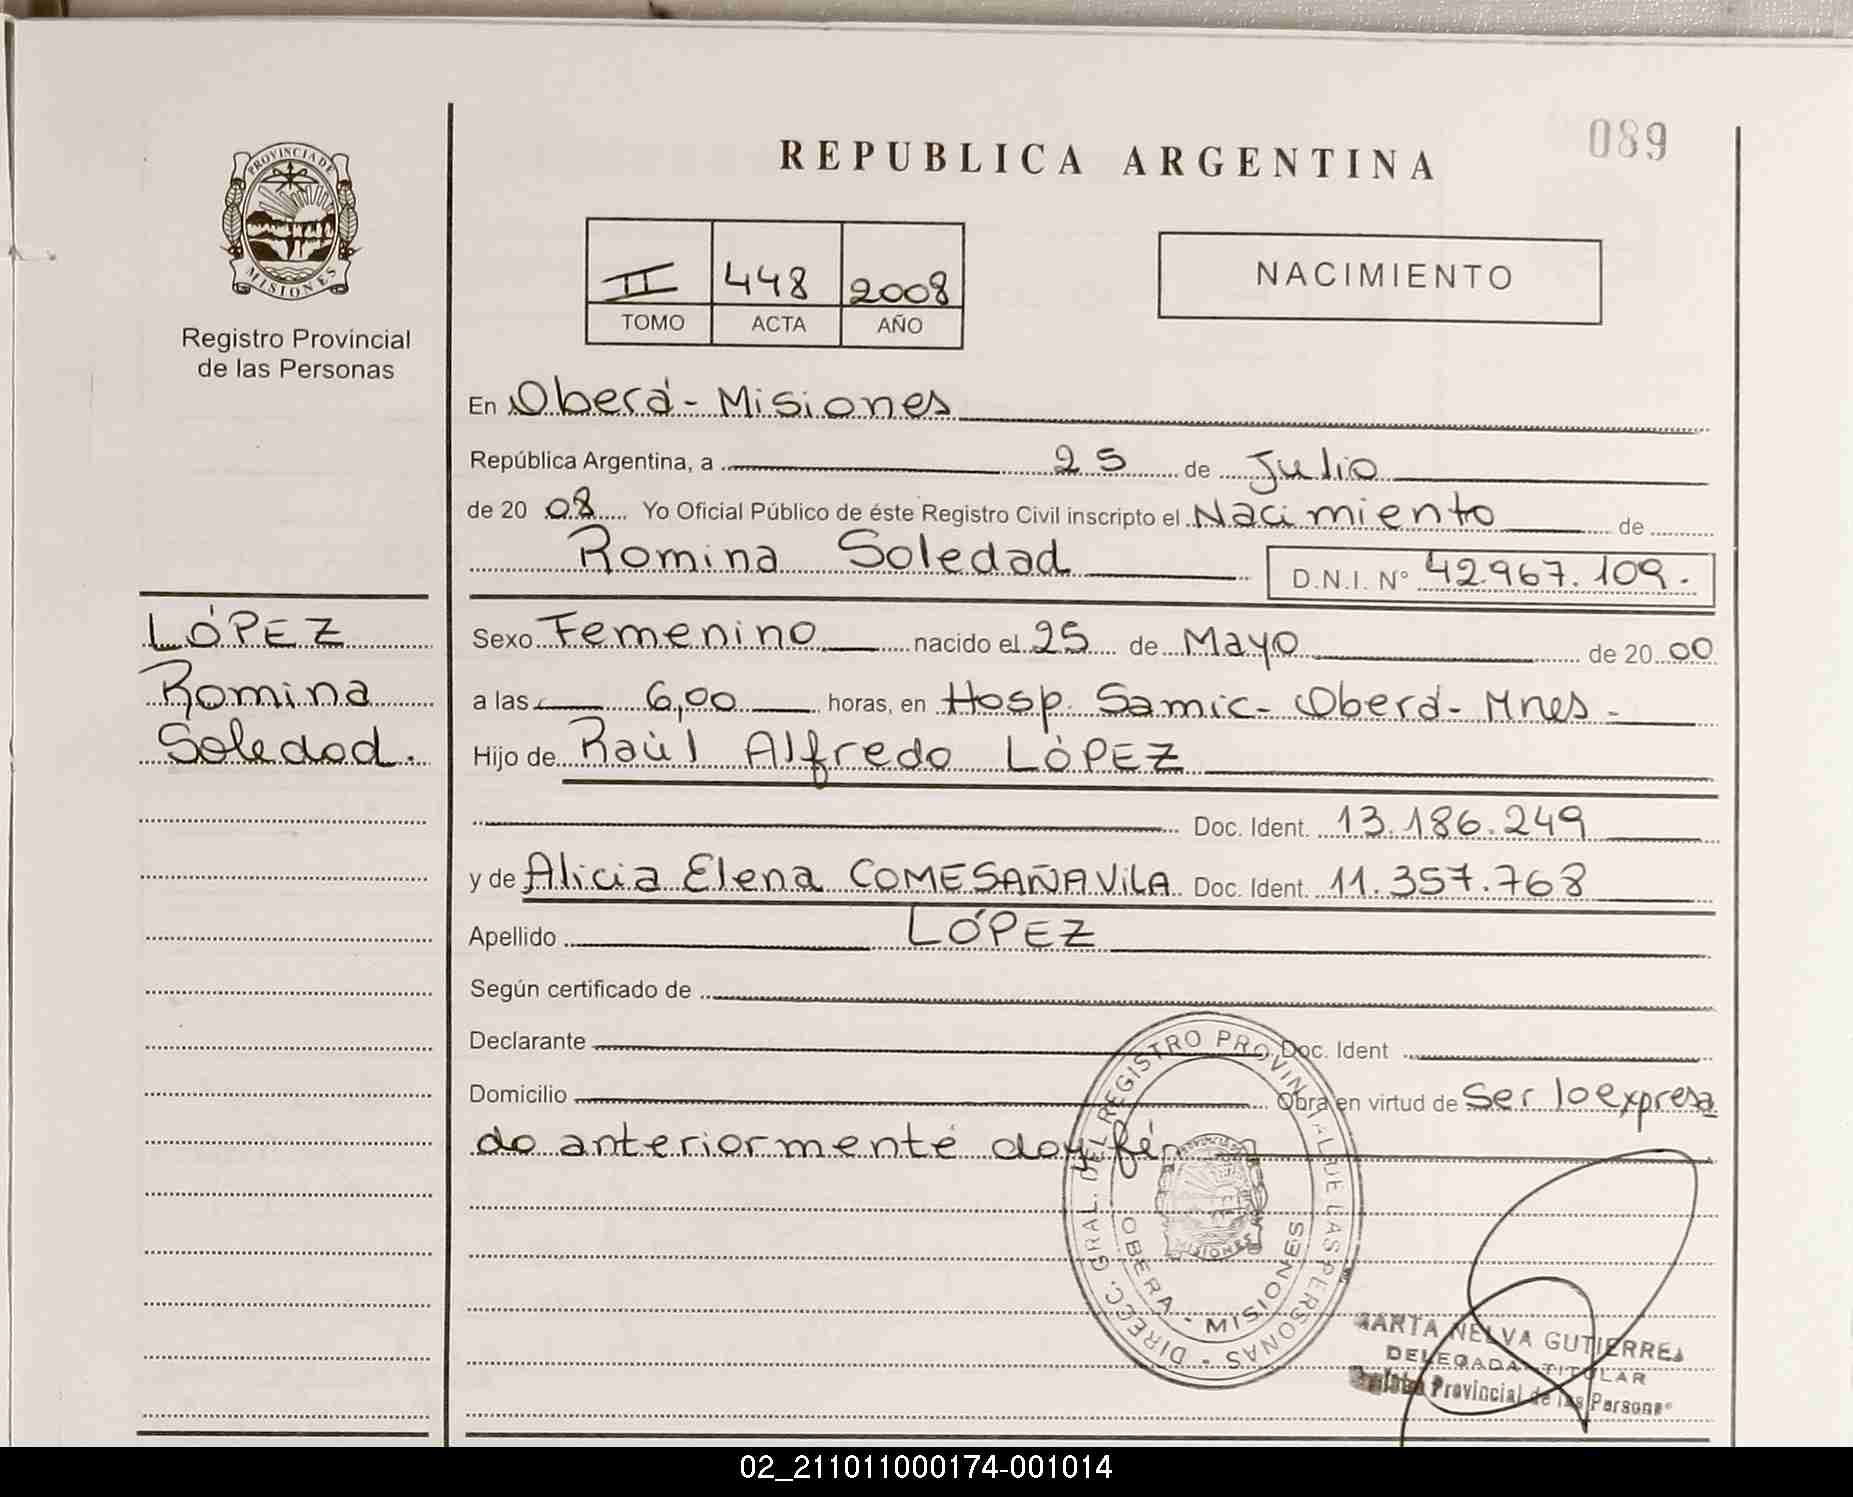 089
REPUBLICA ARGENTINA
PROVINCIA DE
MISIONES
Registro Provincial
de las Personas
II 448 2008
TOMO ACTA AÑO
NACIMIENTO
En Oberá - Misiones
República Argentina, a 25 de Julio
de 20 08 Yo Oficial Público de éste Registro Civil inscripto el Nacimiento de
Romina Soledad D.N.I. Nº 42.967.109.
LÓPEZ
Romina
Soledad.
Sexo Femenino nacido el 25 de Mayo de 20 00
a las 6,00 horas, en Hosp. Samic - Oberá - Mnes -
Hijo de Raùl Alfredo LÒPEZ
Doc. Ident. 13.186.249
y de Alicia Elena COMESAÑA VILA Doc. Ident. 11.357.768
Apellido LÓPEZ
Según certificado de
Declarante Doc. Ident
Domicilio Obra en virtud de Ser lo expresa
do anteriormente doy fé
DIREC. GRAL. DEL REGISTRO PROVINCIAL DE LAS PERSONAS
OBERA - MISIONES
MISIONES
NELVA GUTIERRE
DELEGADA TITULAR
Provincial de las Persona
02_211011000174-001014